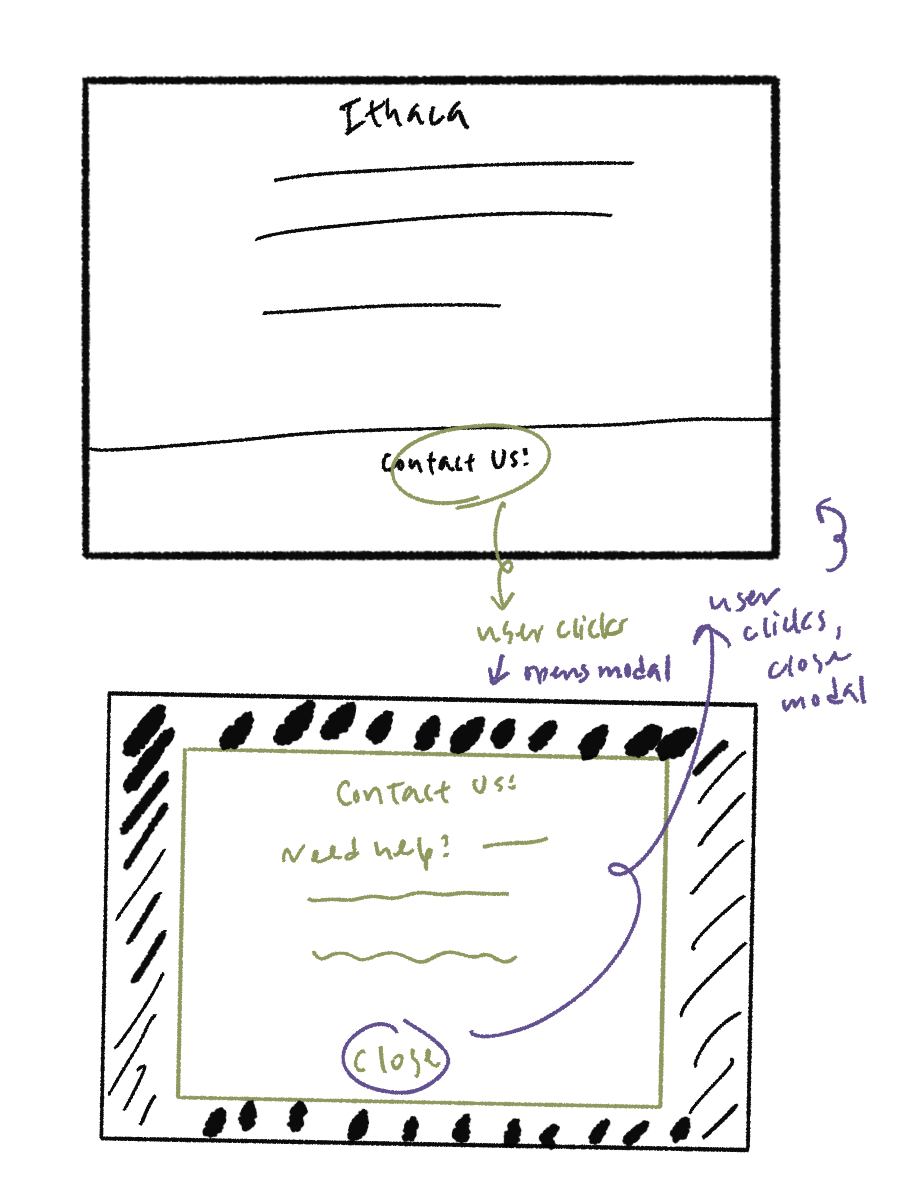 Ithaca
Contact Us!
user clicks
opens modal
user
clicks,
close
modal
Contact Us!
Need help?
Close